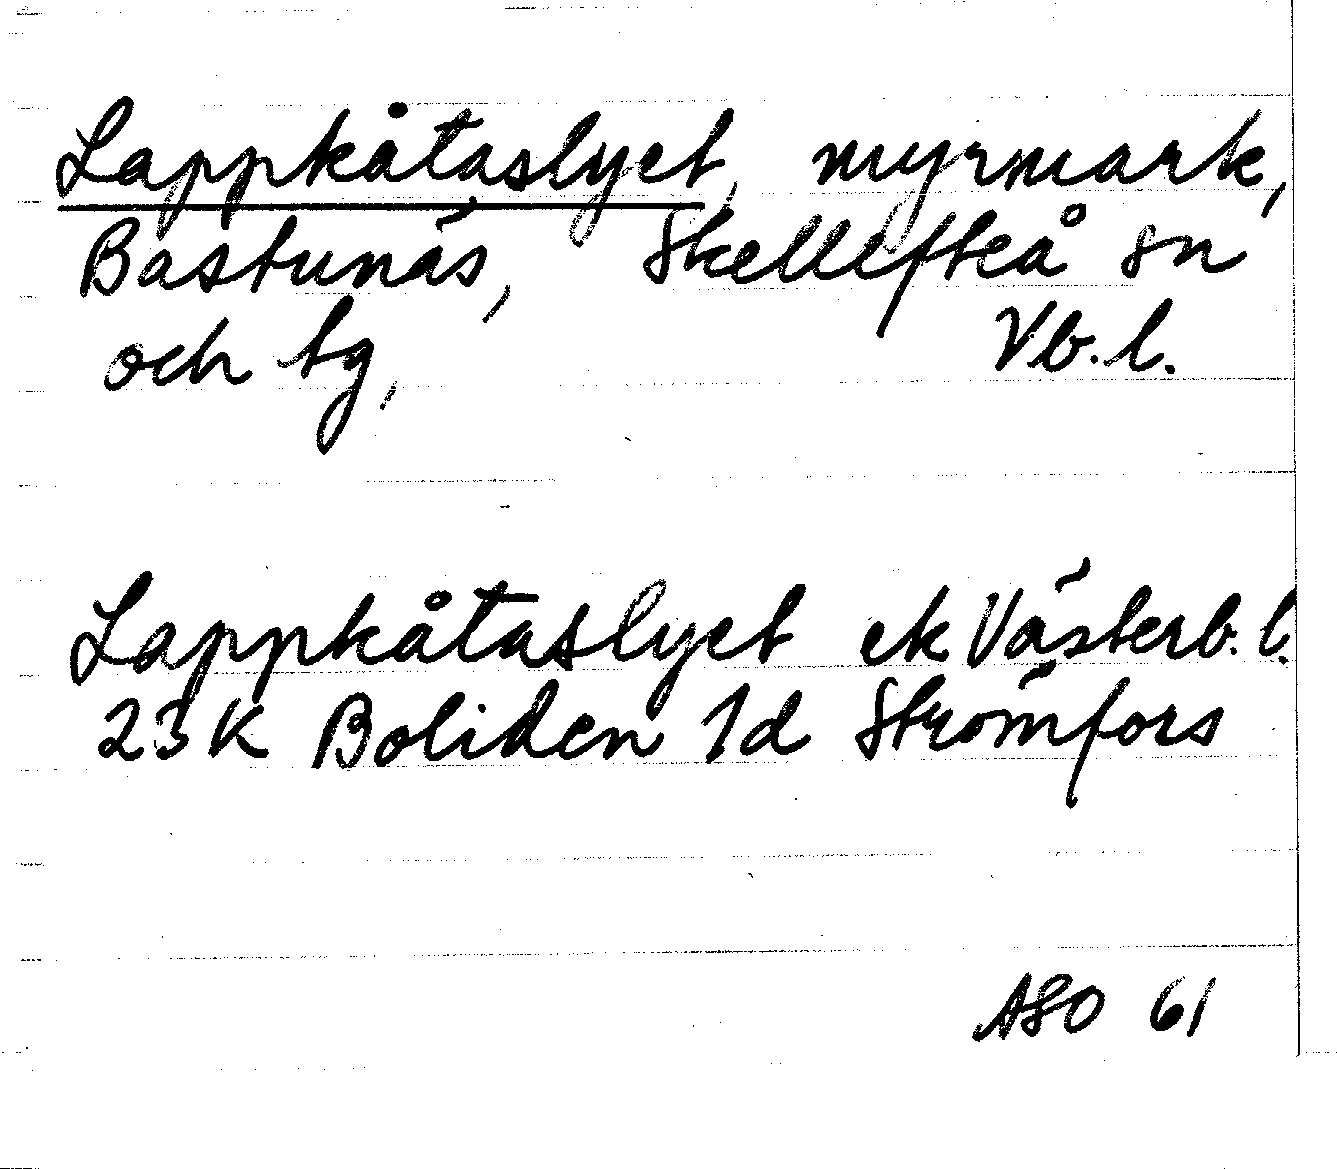 Lappkåtaslyet, myrmark,
Bastunäs, Skellefteå sn
och tg, Vb.l.
Lappkåtaslyet ek Västerb. l.
23K Boliden 1d Strömfors
ASO 61